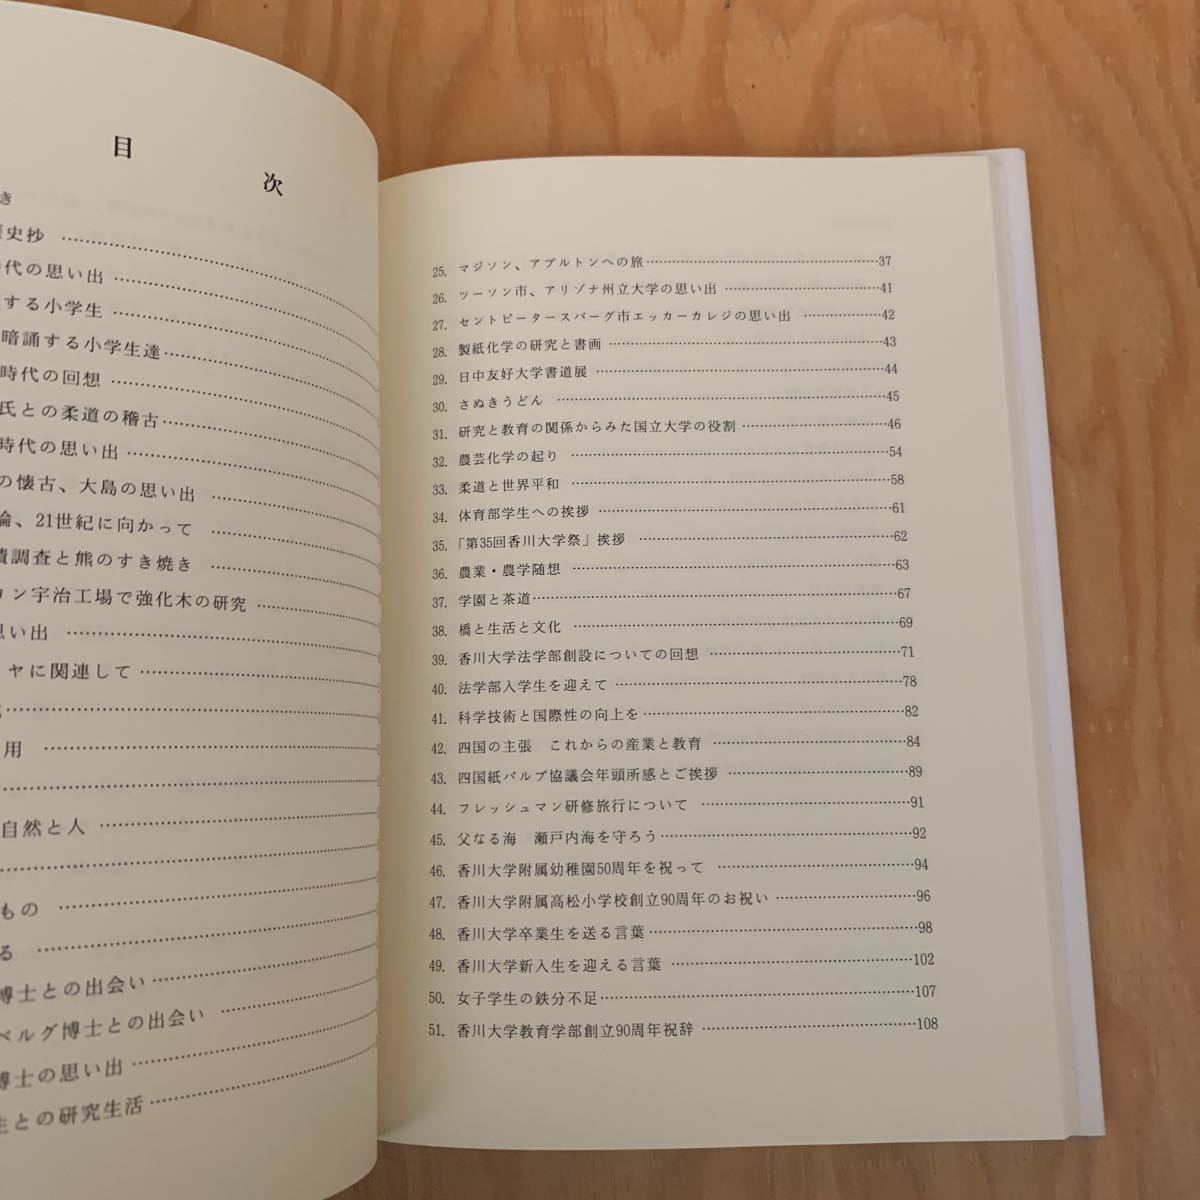 目　次
き
史抄
代の思い出
する小学生
暗誦する小学生達
時代の回想
氏との柔道の稽古
時代の思い出
の懐古、大島の思い出
論、21世紀に向かって
調査と熊のすき焼き
ン宇治工場で強化木の研究
思い出
ヤに関連して
用
自然と人
もの
る
博士との出会い
ベルグ博士との出会い
博士の思い出
生との研究生活
25. マジソン、アプルトンへの旅…………37
26. ツーソン市、アリゾナ州立大学の思い出…………41
27. セントピータースバーグ市エッカーカレジの思い出…………42
28. 製紙化学の研究と書画…………43
29. 日中友好大学書道展…………44
30. さぬきうどん…………45
31. 研究と教育の関係からみた国立大学の役割…………46
32. 農芸化学の起り…………54
33. 柔道と世界平和…………58
34. 体育部学生への挨拶…………61
35. 「第35回香川大学祭」挨拶…………62
36. 農業・農学随想…………63
37. 学園と茶道…………67
38. 橋と生活と文化…………69
39. 香川大学法学部創設についての回想…………71
40. 法学部入学生を迎えて…………78
41. 科学技術と国際性の向上を…………82
42. 四国の主張　これからの産業と教育…………84
43. 四国紙パルプ協議会年頭所感とご挨拶…………89
44. フレッシュマン研修旅行について…………91
45. 父なる海　瀬戸内海を守ろう…………92
46. 香川大学附属幼稚園50周年を祝って…………94
47. 香川大学附属高松小学校創立90周年のお祝い…………96
48. 香川大学卒業生を送る言葉…………98
49. 香川大学新入生を迎える言葉…………102
50. 女子学生の鉄分不足…………107
51. 香川大学教育学部創立90周年祝辞…………108